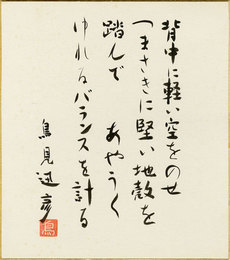 背中に軽い空をのせ
つまさきに堅い地殻を
踏んで　あやうく
ゆれるバランスを計る
鳥見迅彦
鳥